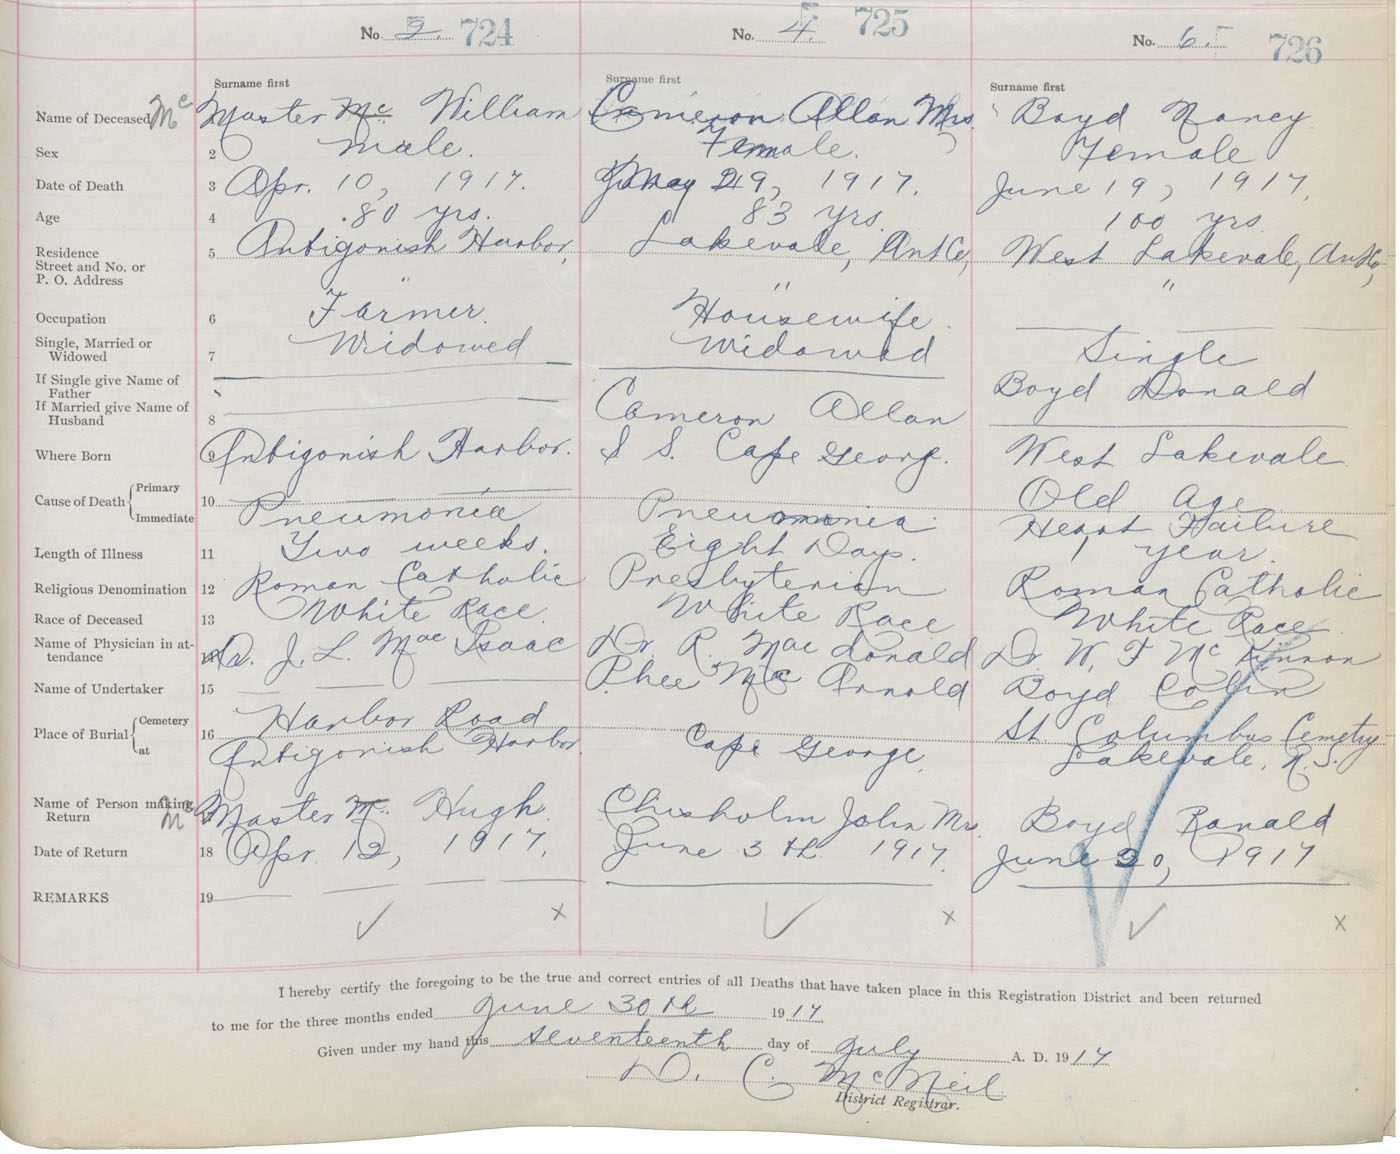 No. 2. 724 No. 4. 725 No. 6. 726
Surname first Surname first Surname first
Name of Deceased Mc Master Mc. William Cameron Allan Mrs. Boyd Nancy
Sex 2 male. Female. Female
Date of Death 3 Apr. 10, 1917. May 29, 1917. June 19, 1917.
Age 4 80 yrs. 83 yrs. 100 yrs.
Residence 5 Antigonish Harbor, Lakevale, Ant Co, West Lakevale, Ant Co,
Street and No. or
P. O. Address " " "
Occupation 6 Farmer. Housewife.
Single, Married or Widowed Widowed Single
Widowed 7
If Single give Name of Boyd Donald
Father
If Married give Name of Cameron Allan
Husband 8
Where Born 9 Antigonish Harbor. S S. Cape George. West Lakevale
Cause of Death Primary 10 Old Age
Immediate Pneumonia Pneumonia Heart Failure
Length of Illness 11 Two weeks. Eight Days. 1 year.
Religious Denomination 12 Roman Catholic Presbyterian Roman Catholic
Race of Deceased 13 White Race White Race White Race
Name of Physician in at- Dr. J. L. Mac Isaac Dr R. Mac donald Dr. W. F Mc Kinnon
tendance 14
Name of Undertaker 15 Mac Donald Boyd Colin
Place of Burial Cemetery 16 Harbor Road St Columbus Cemetry
at Antigonish Harbor. Cape George, Lakevale, N. S.
Name of Person making Mc Master Mc. Hugh. Chisholm John Mrs. Boyd Ranald
Return
Date of Return 18 Apr 12, 1917. June 3 th. 1917. June 20, 1917
REMARKS 19
I hereby certify the foregoing to be the true and correct entries of all Deaths that have taken place in this Registration District and been returned
to me for the three months ended June 30th 1917
Given under my hand this seventeenth day of July A. D. 1917
D. C. McNeil
District Registrar.